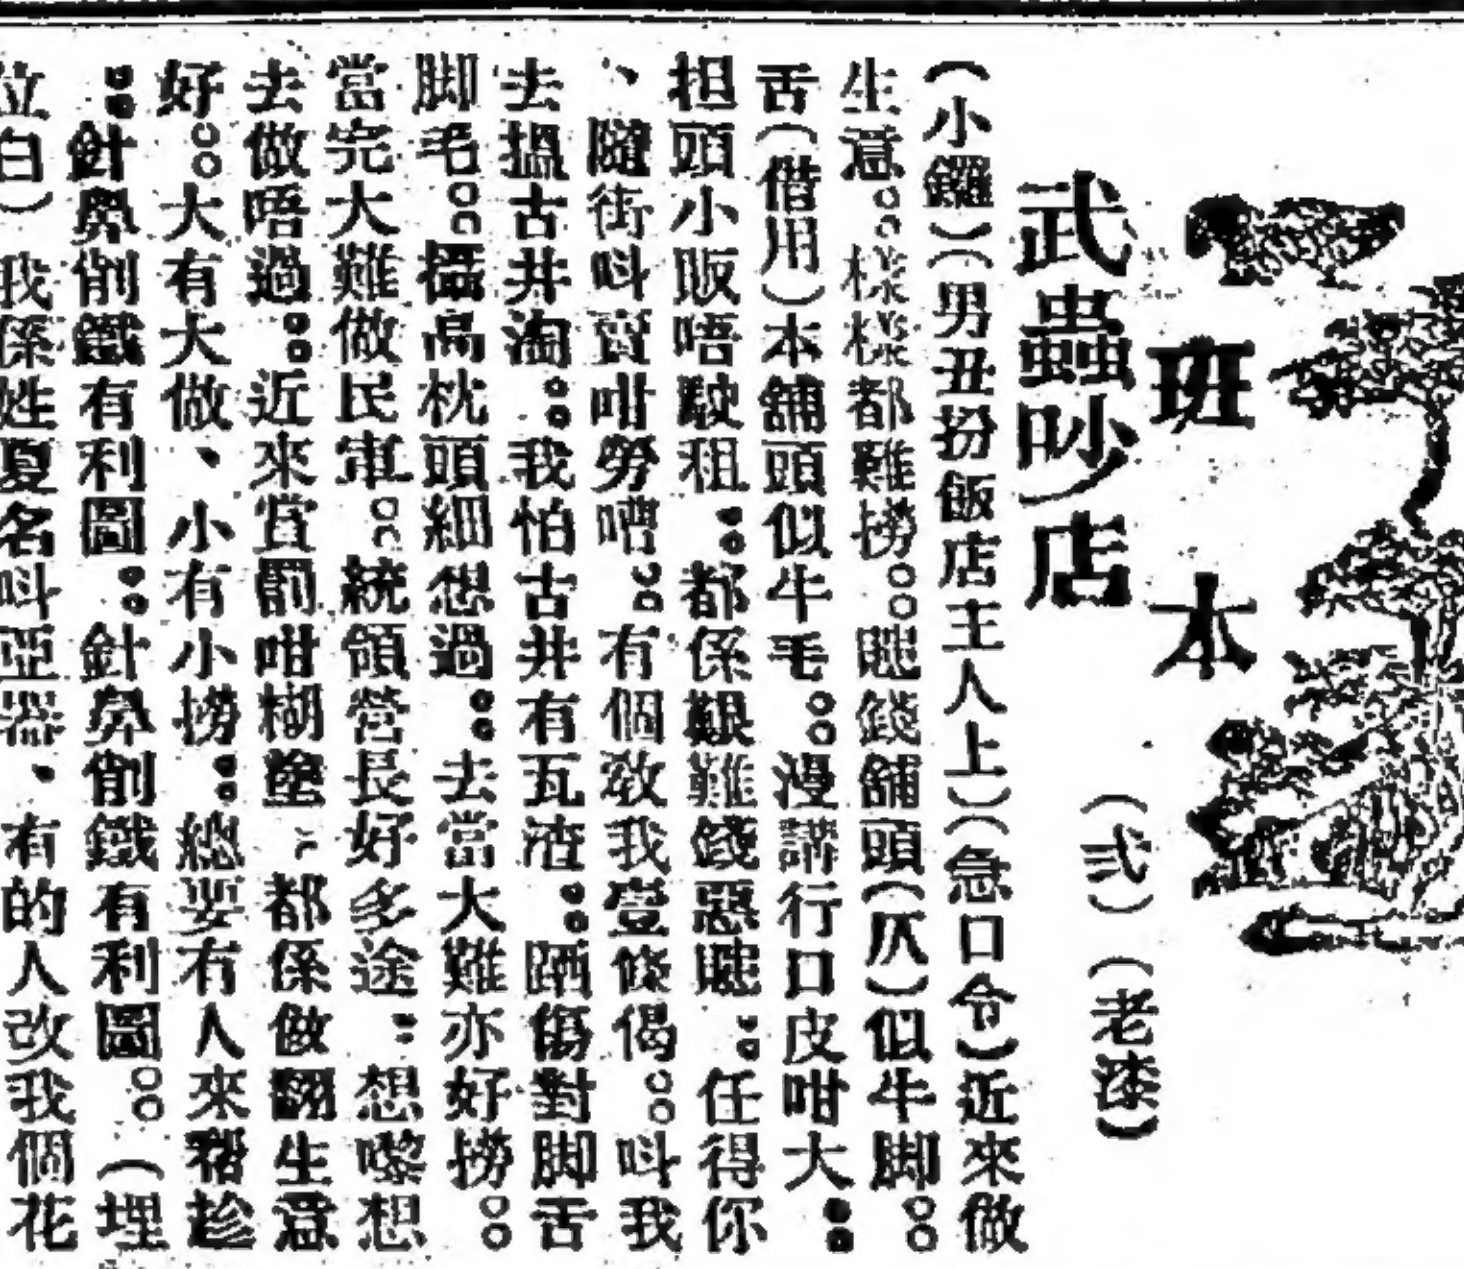 班本
武蟲吵店
(弍)(老漆)
(小鑼)(男丑扮飯店主人上)(急口令)近來做
生意。○樣樣都難撈○○賍錢舖頭(仄)似牛脚。○○
舌(借用)本舖頭似牛毛。○○漫講行口皮咁大。●●
担頭小販唔駛租●●都係艱難錢惡賍●●任得你
、隨街呌賣咁勞嘈○○有個敎我壹條偈○○呌我
去搵古井淘●○我怕古井有瓦渣●○䧳傷對脚舌
脚毛○○攝高枕頭細想過●●去當大難亦好撈○○
當完大難做民軍○○統領營長好多途●●想嚟想
去做唔過●●近來賞罰咁糊塗●都係做翻生意
好○○大有大做、小有小撈●●總要有人來幫趁
●●針鼻削鐵有利圖●○針鼻削鐵有利圖○○(埋
位白)我係姓夏名呌亞器、有的人改我個花